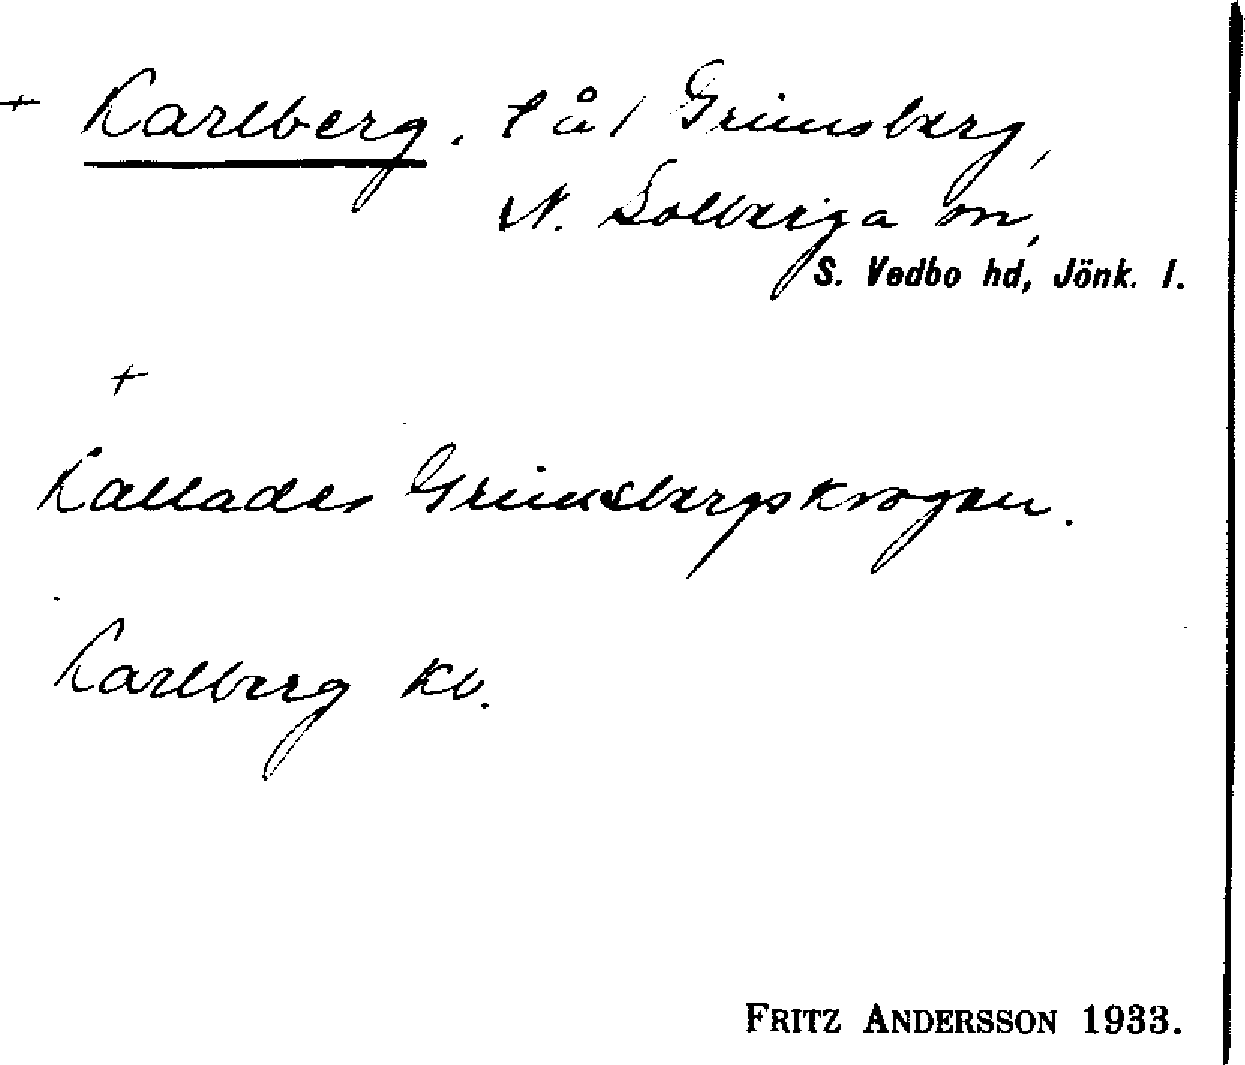 + Karlberg. l å / Grimsberg,
N. Solberga sn,
S. Vedbo hd, Jönk. l.
+
Kallades Grimsbergskrogen.
Karlberg kb.
FRITZ ANDERSSON 1933.